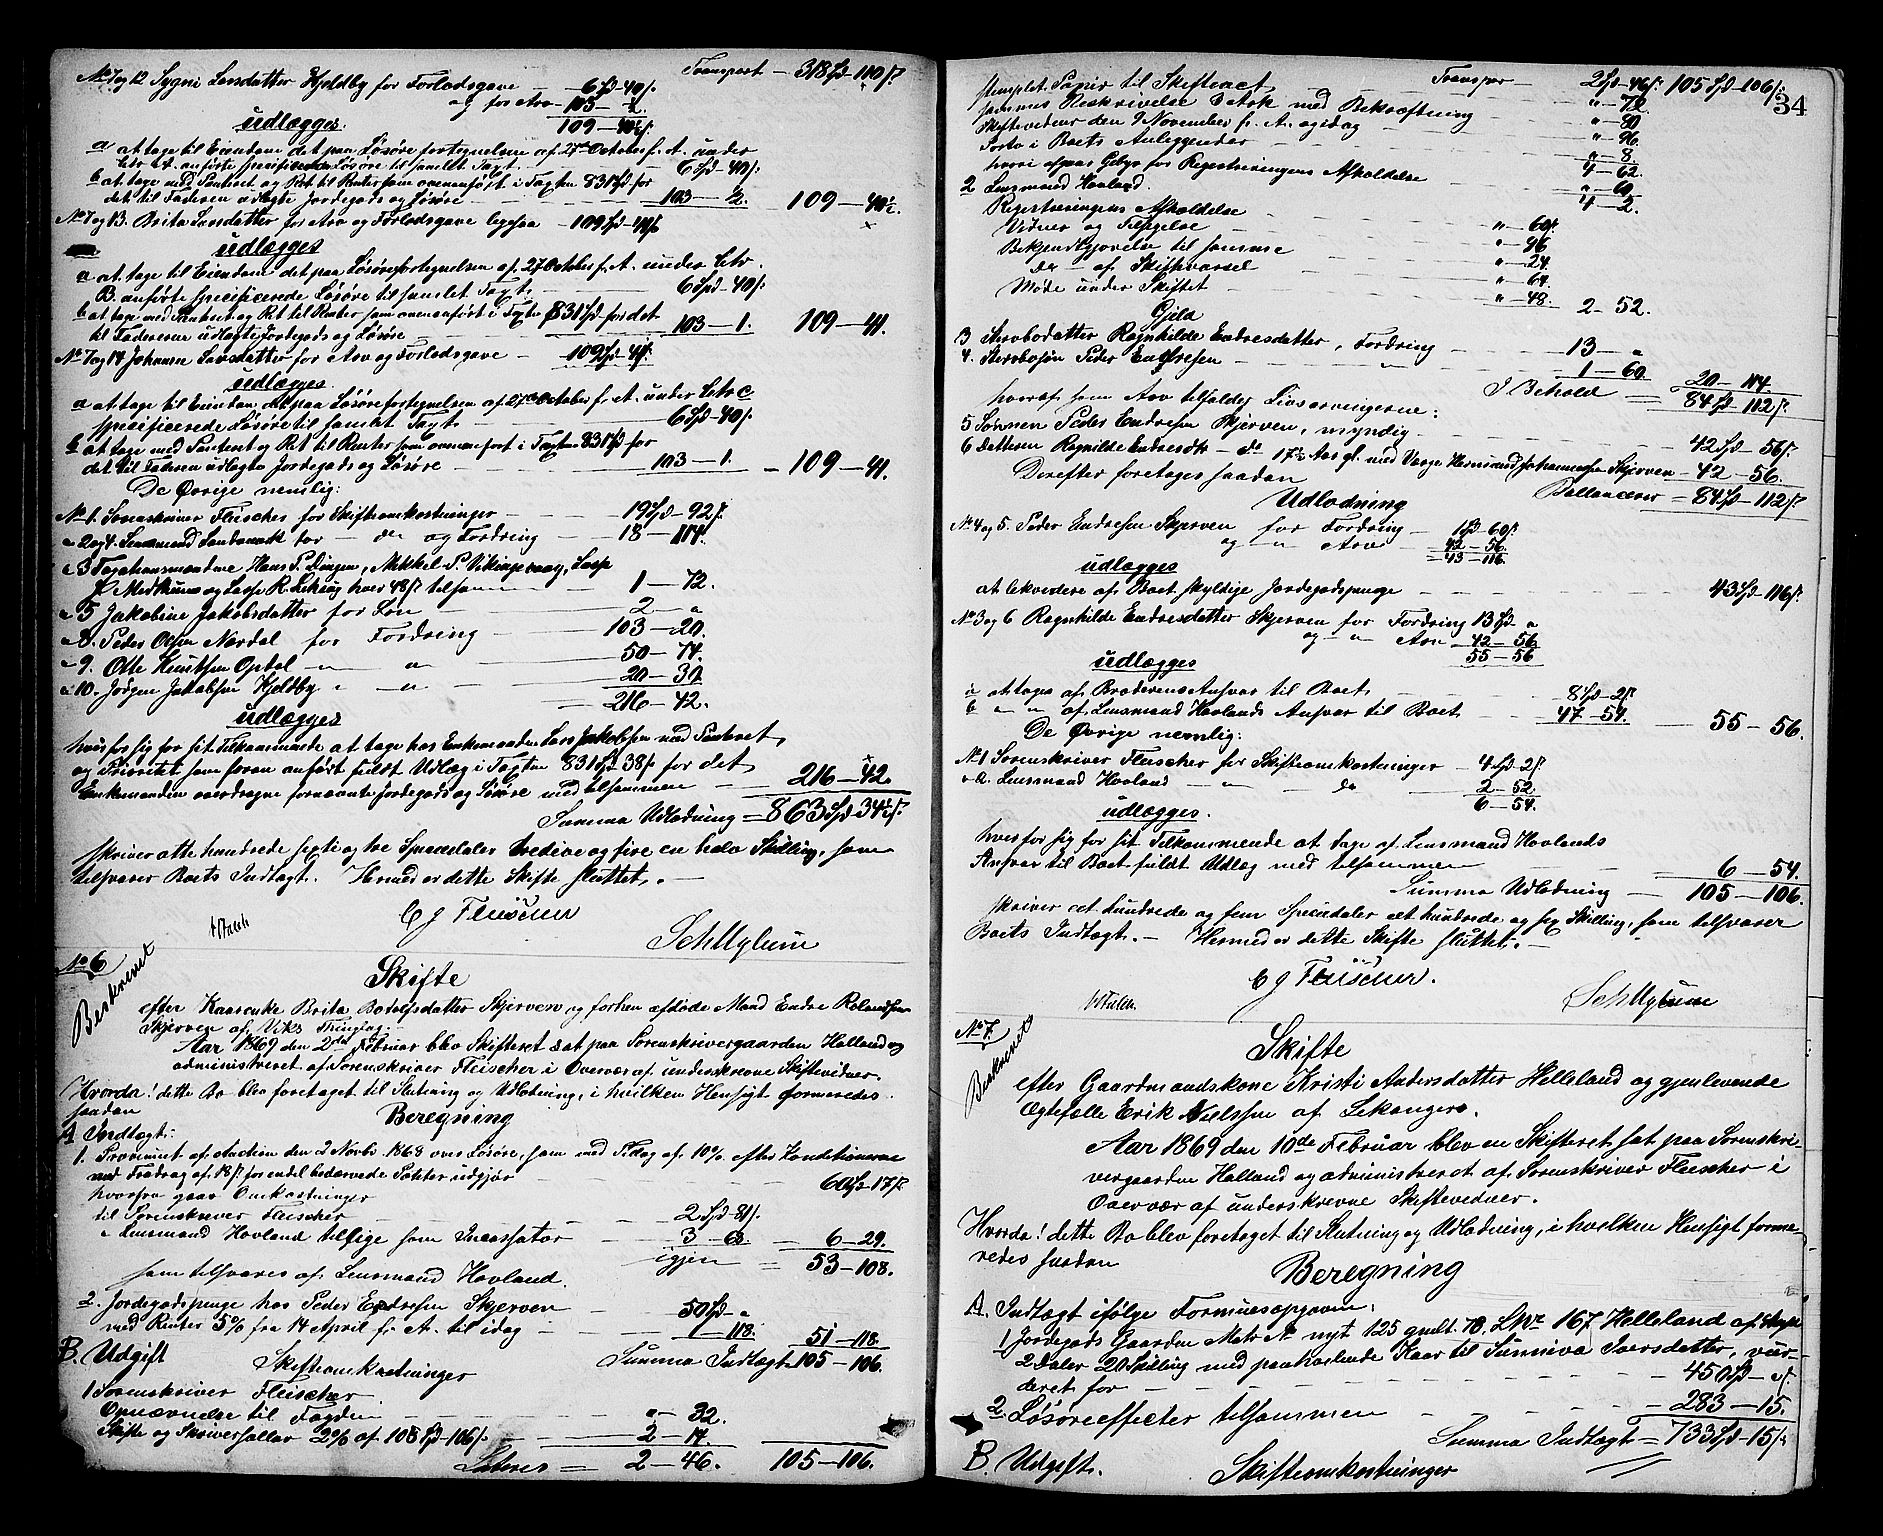 Transport — 318 Spd — 110 ß
No 7 og 12 Sygni Larsdatter Hjeldby for Forlodsgave — 6 Spd — 40 ß.
og for Arv — 103 — ½.
udlægges 109 — 40½ ß.
a at tage til Eiendom det paa Løsørefortegnelsen af 27de October f. A. under
Litr A. anførte specificerede Løsøre til samlet Taxt — 6 Spd — 40 ß.
b at tage med Panteret og Ret til Renter som ovenanført i Taxten 831 Spd for
det til Faderen udlagte Jordegods og Løsøre — 103 — ½. 109 — 40½.
No 7 og 13. Brita Larsdatter for Arv og Forlodsgave ligesaa — 109 Spd — 41 ß
udlægges
a at tage til Eiendom det paa Løsørefortegnelsen af 27 October f. A. under Litr.
B. anførte specificerede Løsøre til samlet Taxt — 6 Spd — 40 ß.
b at tage med Panteret og Ret til Renter som ovenanført i Taxten 831 Spd for det
til Faderen udlagte Jordegods og Løsøre — 103 — 1. 109 — 41.
No 7 og 14 Johanna Larsdatter for Arv og Forlodsgave — 109 Spd — 41 ß.
udlægges
a at tage til Eiendom det paa Løsørefortegnelsen af 27de October f. A. under Litr C
specificerede Løsøre til samlet Taxt — 6 Spd — 40 ß.
b at tage med Panteret og Ret til Renter som ovenanført i Taxten 831 Spd for
det til Faderen udlagte Jordegods og Løsøre — 103 — 1. — 109 — 41.
De Øvrige nemlig:
No 1. Sorenskriver Fleischer for Skifteomkostninger — 19 Spd — 92 ß.
" 2 og 4. Lensmand for — do og Fordring — 18 — 114.
" 3 Taxationsmændene Hans P. Mikkel P. Lasse
og Lasse R. hver 48 ß tilsammen — 1 — 72.
" 5 Jakobine Jakobsdatter for Løn — 2 — "
" 8. Peder Olsen Nordal for Fordring — 103 — 20.
" 9. Otte Knutsen Opdal — " " — 50 — 74.
" 10. Jørgen Jakobsen Hjeldby " — " — 20 — 30
= 216 — 42.
udlægges
hver for sig for sit Tilkommende at tage hos Enkemanden Lars Jakobsen med Panteret
og Prioritet som foran anført fuldt Udlæg i Taxten 831 Spd 38 ß for det
Enkemanden overdragne fornævnte Jordegods og Løsøre med tilsammen — 216 — 42.
Summa Udlodning = 863 Spd 34½ ß.
skriver otte hundrede sexti og tre Speciedaler tredive og fire en halv Skilling, som
tilsvarer Boets Indtægt. Hermed er dette Skifte sluttet. —
C J Fleischer
No 6
Beskrevet
Skifte
efter Kaarenke Brita Botolfsdatter Skjerven og forhen afdøde Mand Endre
Skjerven af Viks Thinglag. —
Aar 1869 den 2den Februar blev Skifteret sat paa Sorenskrivergaarden Holland og
administreret af Sorenskriver Fleischer i Overvær af underskrevne Skiftevidner.
Hvorda! dette Bo blev foretaget til Slutning og Udlodning, i hvilken Hensigt formeredes
saadan
Beregning
A Indtægt:
1. Provenuet af Auction den 2 Novbr. 1868 over Løsøre, som med Tillæg af 10% efter Konditionerne
med Fradrag af 18 ß for endel bedærvede Sækker udgjør — 60 Spd 17 ß.
hvorfra gaar Omkostninger
til Sorenskriver Fleischer — 2 Spd — 81 ß.
" Lensmand Hovland tillige som Incassator — 3 — 68. — 6 — 29.
igjen = 53 — 108.
som tilsvares af Lensmand Hovland.
2. Jordegodspenge hos Peder Endresen Skjerven — 50 Spd — "
med Renter 5% fra 14 April f. A. til idag — 1 — 118. 51 — 118.
Summa Indtægt 105 — 106.
B. Udgift
Skifteomkostninger
1 Sorenskriver Fleischer
Opnævnelse til — " — 32.
Skifte og Skriversallar 2% af 108 Spd — 106 ß. — 2 — 14.
Lateres = 2 — 46. 105 — 106.
34
Transpor — 2 Spd — 46 ß. 105 Spd — 106 ß.
stemplet Papir til Skifteact — " — 72.
sammes Beskrivelse 3 Ark med Bekræftning — " — 80
Skiftevidner den 9 November f. A. og idag — " — 96.
Porto i Boets Anliggender — " — 8.
4 — 62.
hvori afgaar Gebyr for Registreringens Afholdelse — " — 60
4 — 2.
2 Lensmand Hovland.
Registreringens Afholdelse — " — 60 ß.
Vidner og Tilsigelse — " — 96
Bekjendtgjørelse til samme — " — 24.
do — af Skiftvarsel — " — 64.
Møde under Skiftet — " — 48. 2 — 52.
Gjæld
3 Stervbodatter Ragnhilde Endresdatter, Fordring — 13 — "
4. Stervbosøn Peder Endresen — " — 1 — 60. 20 — 114.
I Behold = 84 Spd — 112 ß.
hvoraf som Arv tilfalder Livsarvingerne:
5 Sønnen Peder Endresen Skjerven, myndig — 42 Spd — 56 ß.
6 datteren Ragnilde Endresdtr — do 17½ Aar gl. med Værge Hermund Johannesen Skjerven — 42 — 56.
Ballancerer = 84 Spd — 112 ß.
Derefter foretages saadan
Udlodning
No 4 og 5. Peder Endresen Skjerven for Fordring — 1 Spd — 60 ß.
og — " — Arv — 42 — 56.
43 — 116.
udlægges
at likvidere af Boet skyldige Jordegodspenge — 43 Spd — 116 ß.
No 3 og 6 Ragnhilde Endresdatter Skjerven for Fordring 13 Spd — "
og — " — Arv — 42 — 56
55 — 56
udlægges
a at tages af Broderens Ansvar til Boet — 8 Spd — 2 ß
b " — " af Lensmand Hovlands Ansvar til Boet — 47 — 54. — 55 — 56.
De Øvrige nemlig:
No 1 Sorenskriver Fleischer for Skifteomkostninger — 4 Spd — 2 ß.
" 2. Lensmand Hovland — " — do — 2 — 52
6 — 54.
udlægges.
hver for sig for sit Tilkommende at tage af Lensmand Hovlands
Ansvar til Boet fuldt Udlæg med tilsammen — 6 — 54.
Summa Udlodning — 105 — 106.
skriver et hundrede og fem Speciedaler et hundrede og sex Skilling, som tilsvarer
Boets Indtægt. — Hermed er dette Skifte sluttet. —
C J Fleischer.
No 7.
Beskrevet
Skifte
efter Gaardmandskone Kristi Andersdatter Helleland og gjenlevende
Ægtefælle Erik Nielssen af Lekanger.
Aar 1869 den 10de Februar blev en Skifteret sat paa Sorenskri-
vergaarden Holland og administreret af Sorenskriver Fleischer i
Overvær af underskrevne Skiftevidner.
Hvorda! dette Bo blev foretaget til Slutning og Udlodning, i hvilken Hensigt forme-
redes saadan
Beregning
A. Indtægt ifølge Formuesopgaven:
1 Jordegods Gaarden Matr No nyt 125 gmlt. 78. Lnr 167 Helleland af Skyld
2 Daler 20 Skilling med paaheftende Kaar til Sunniva Iversdatter, vur-
deret for — 450 Spd — " ß.
2. Løsøreeffecter tilsammen — 283 — 15.
Summa Indtægt = 733 Spd — 15 ß
B. Udgift.
Skifteomkostninger